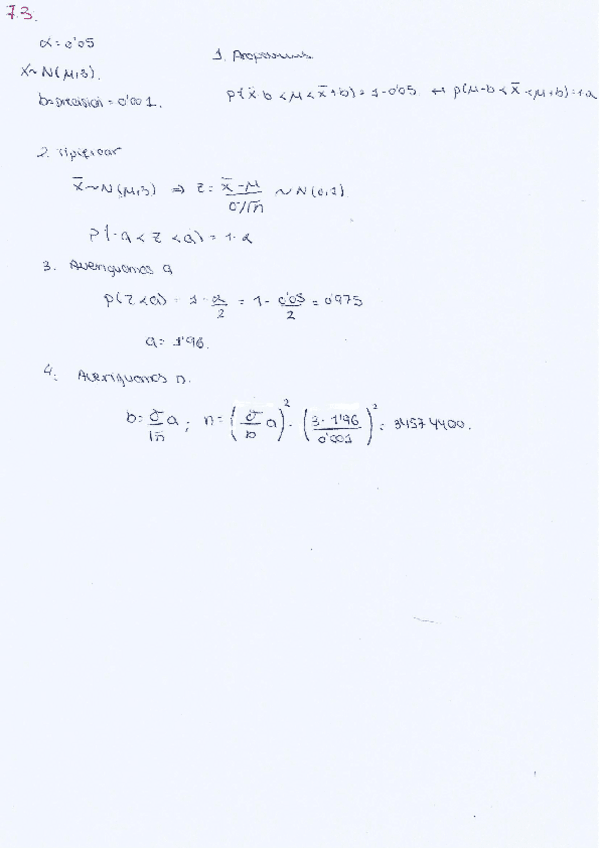 7.3.
α = 0'05
X ~ N(μ, 3).
b = precisión = 0'001.
1. Proponemos
P(x̄ - b < μ < x̄ + b) = 1 - 0'05 ↔ P(μ - b < x̄ < μ + b) = 1 - α
2. Tipificar
x̄ ~ N(μ, 3) ⇒ Z = (x̄ - μ) / (σ/√n) ~ N(0, 1)
P(-a < Z < a) = 1 - α
3. Averiguamos a
P(Z < a) = 1 - α/2 = 1 - 0'05/2 = 0'975
a = 1'96.
4. Averiguamos n.
b = σ/√n a ; n = (σ/b a)² = (3 · 1'96 / 0'001)² = 34574400.